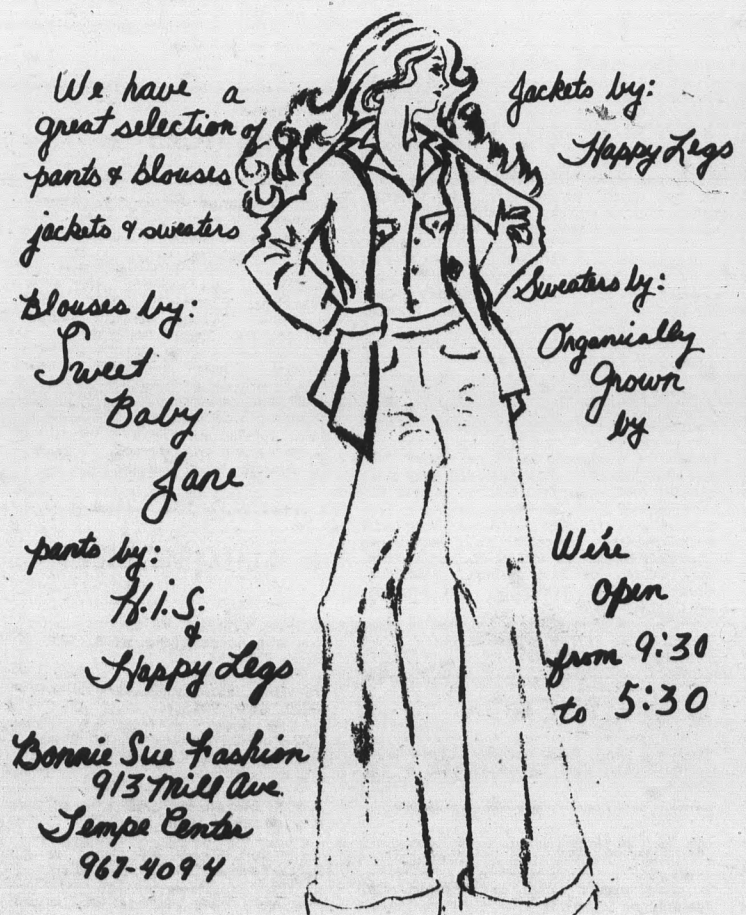 We have a
great selection of
pants & blouses
jackets & sweaters
Blouses by:
Sweet
Baby
Jane
pants by:
H.I.S.
&
Happy Legs
Bonnie Sue Fashion
913 Mill Ave
Tempe Center
967-4094
Jackets by:
Happy Legs
Sweaters by:
Organically
Grown
by
We're
Open
from 9:30
to 5:30